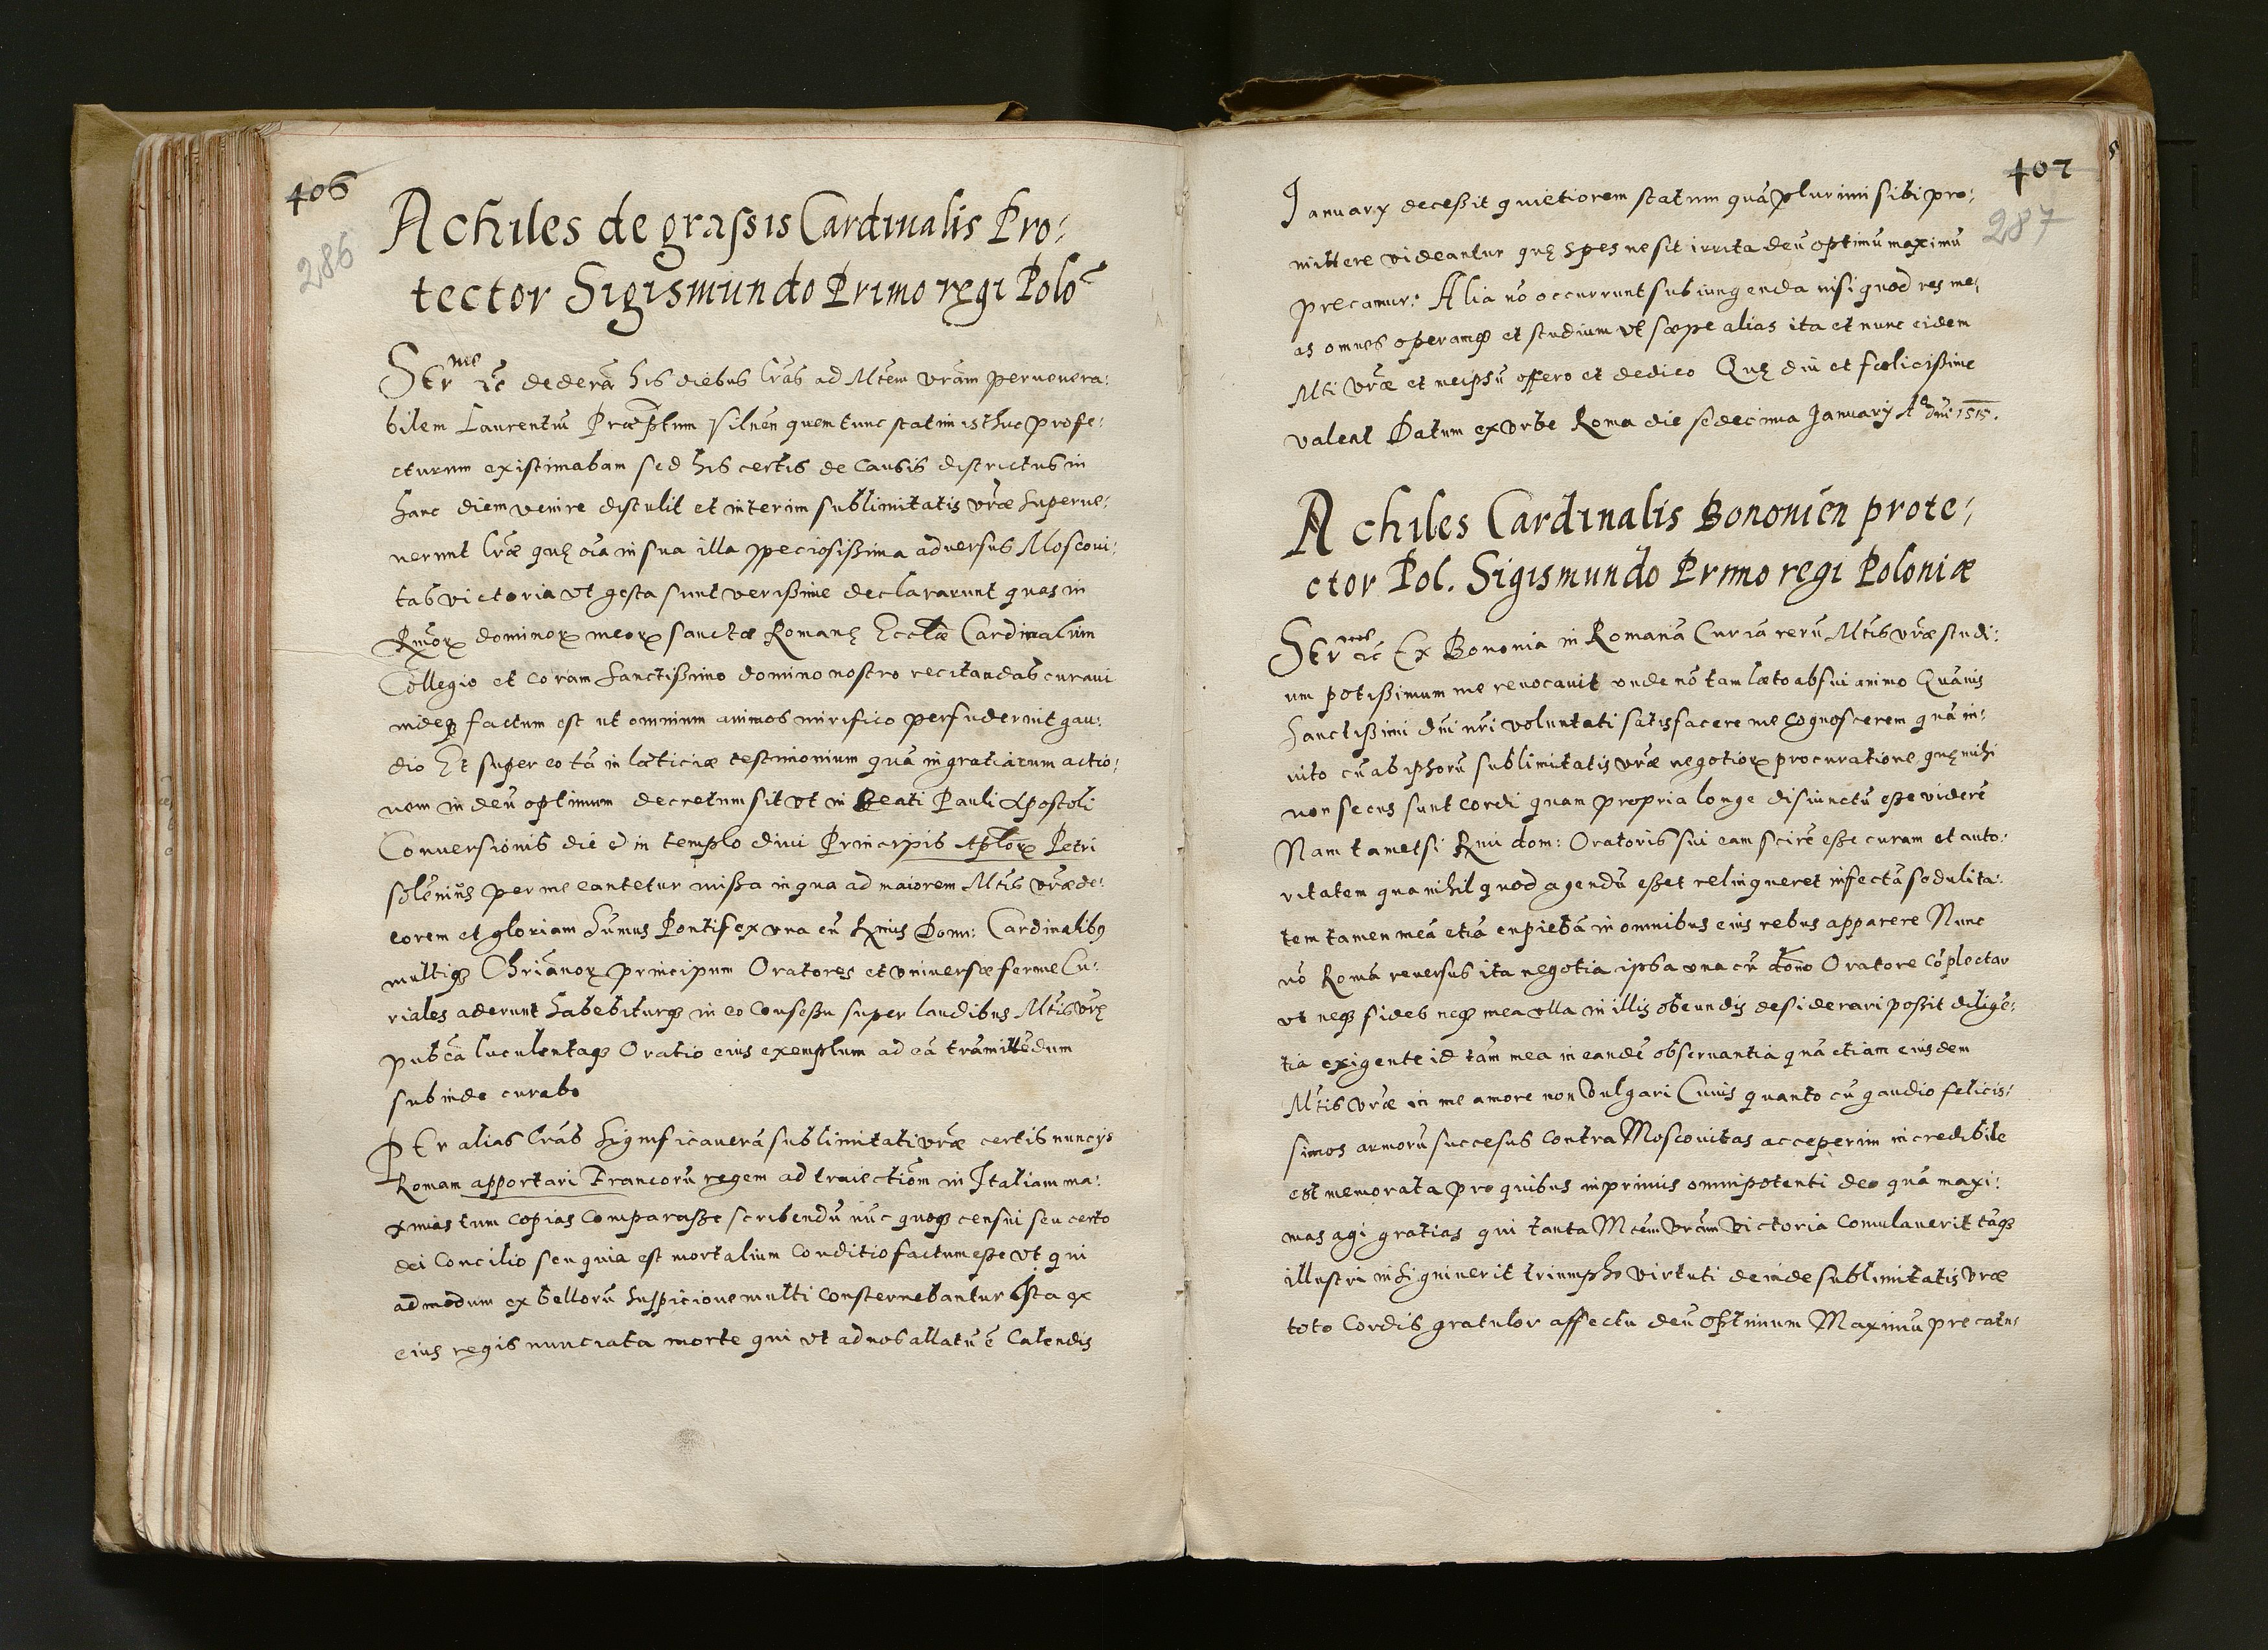 406
286
Achiles de graſsis Cardinalis Pro:
tector Sigismundo Primo regi Polo
Serme etc dederā his diebus lr̄as ad Mtem vr̄am per venera:
bilem Laurentiū Præp̄tum Vilnēn quem tunc statim isthuc profe:
cturum existimabam sed his certis de causis districtus in
hanc diem venire distulit et interim sublimitatis vr̄æ superve:
nerunt lr̄æ quę oīa in sua illa speciosißima adversus Moscovi:
tas victoria vt gesta sunt verißime declararunt quas in
Rmorx dominorx meorx sanctæ Romanę Eccl̄æ Cardinalium
Collegio et coram sanctißimo domino nostro recitandas curavi
indeqꝫ factum est ut omnium animos mirifico perfuderint gau:
dio Et super eo tā in læticiæ testimonium quā in gratiarum actio:
nem in deū optimum decretum sit vt in Beati Pauli Apostoli
Conversionis die ē in templo divi Principis Apl̄orx Petri
solēnius per me cantetur mißa in qua ad maiorem Mtis vr̄æ de:
corem et gloriam Sumus Pontifex vna cū Rmis Domi: Cardinalibꝫ
multiqꝫ Chriānorx principum Oratores et vniversæ ferme Cu:
riales aderunt habebiturqꝫ in eo Conseßu super laudibus Mtis vr̄ę
pub̄ca luculentaqꝫ Oratio eius exemplum ad eā trāmittēdum
subinde curabo
PEr alias lr̄as significaverā sublimitati vr̄æ certis nuncÿs
Romam apportari Francorū regem ad traiectiōm in Italiam ma:
ximas tum copias comparaßse scribendū nūc quoqꝫ censui seu certo
dei Concilio seu quia est mortalium conditio factum eße vt qui
admodum ex bellorū suspicione multi consternebantur Ista ex
eius regis nunciata morte qui vt ad nos allatū ē Calendis
407
287
Januarÿ deceßit quietiorem statum quā plurimi sibi pro:
mittere videantur quę spes ne sit irrita deū optimū maximū
precamur: Alia nō occurrunt subiungenda nisi quod res me:
as omnes operamqꝫ et studium vt sæpe alias ita et nunc eidem
Mti vr̄æ et meipsū offero et dedico Quę diu et fœlicißime
valeat Datum ex vrbe Roma die sedecima Januarÿ Ao dn̄i 1515.
Achiles Cardinalis Bononiēn prote:
ctor Pol. Sigismundo Primo regi Poloniæ
Serme etc Ex Bononia in Romanā Curiā rerū Mtis vr̄æ studi:
um potißimum me revocavit vnde nō tam læto absui animo Quāvis
Sanctißimi dn̄i nr̄i voluntati satisfacere me cognoscerem quā in:
vito cū ab ipsorū sublimitatis vr̄æ negotiorx procuratione, quę mihi
non secus sunt cordi quam propria longe disiunctū eße viderē
Nam tametsi Rmi dom: Oratoris sui eam scirē eße curam et auto:
ritatem qua nihil quod agendū eßet relinqueret infectā sedulita:
tem tamen meā etiā cupiebā in omnibus eius rebus apparere Nunc
vō Romā reversus ita negotia ipsa vna cū domō Oratore cōplectar
vt neqꝫ fides neqꝫ mea vlla in illis obeundis desiderari poßit diligē:
tia exigente id tam mea in eandē observantia quā etiam eiusdem
Mtis vr̄æ in me amore non vulgari Cuius quanto cū gaudio felicis:
simos armorū succesus contra Moscovitas acceperim incredibile
est memoratu pro quibus inprimis omnipotenti deo quā maxi:
mas agi gratias qui tanta Mtem vr̄am victoria comulaverit tāqꝫ
illustri insigniverit triumpho virtuti deinde sublimitatis vr̄æ
toto cordis gratulor affectu deū Optimum Maximū precatu: